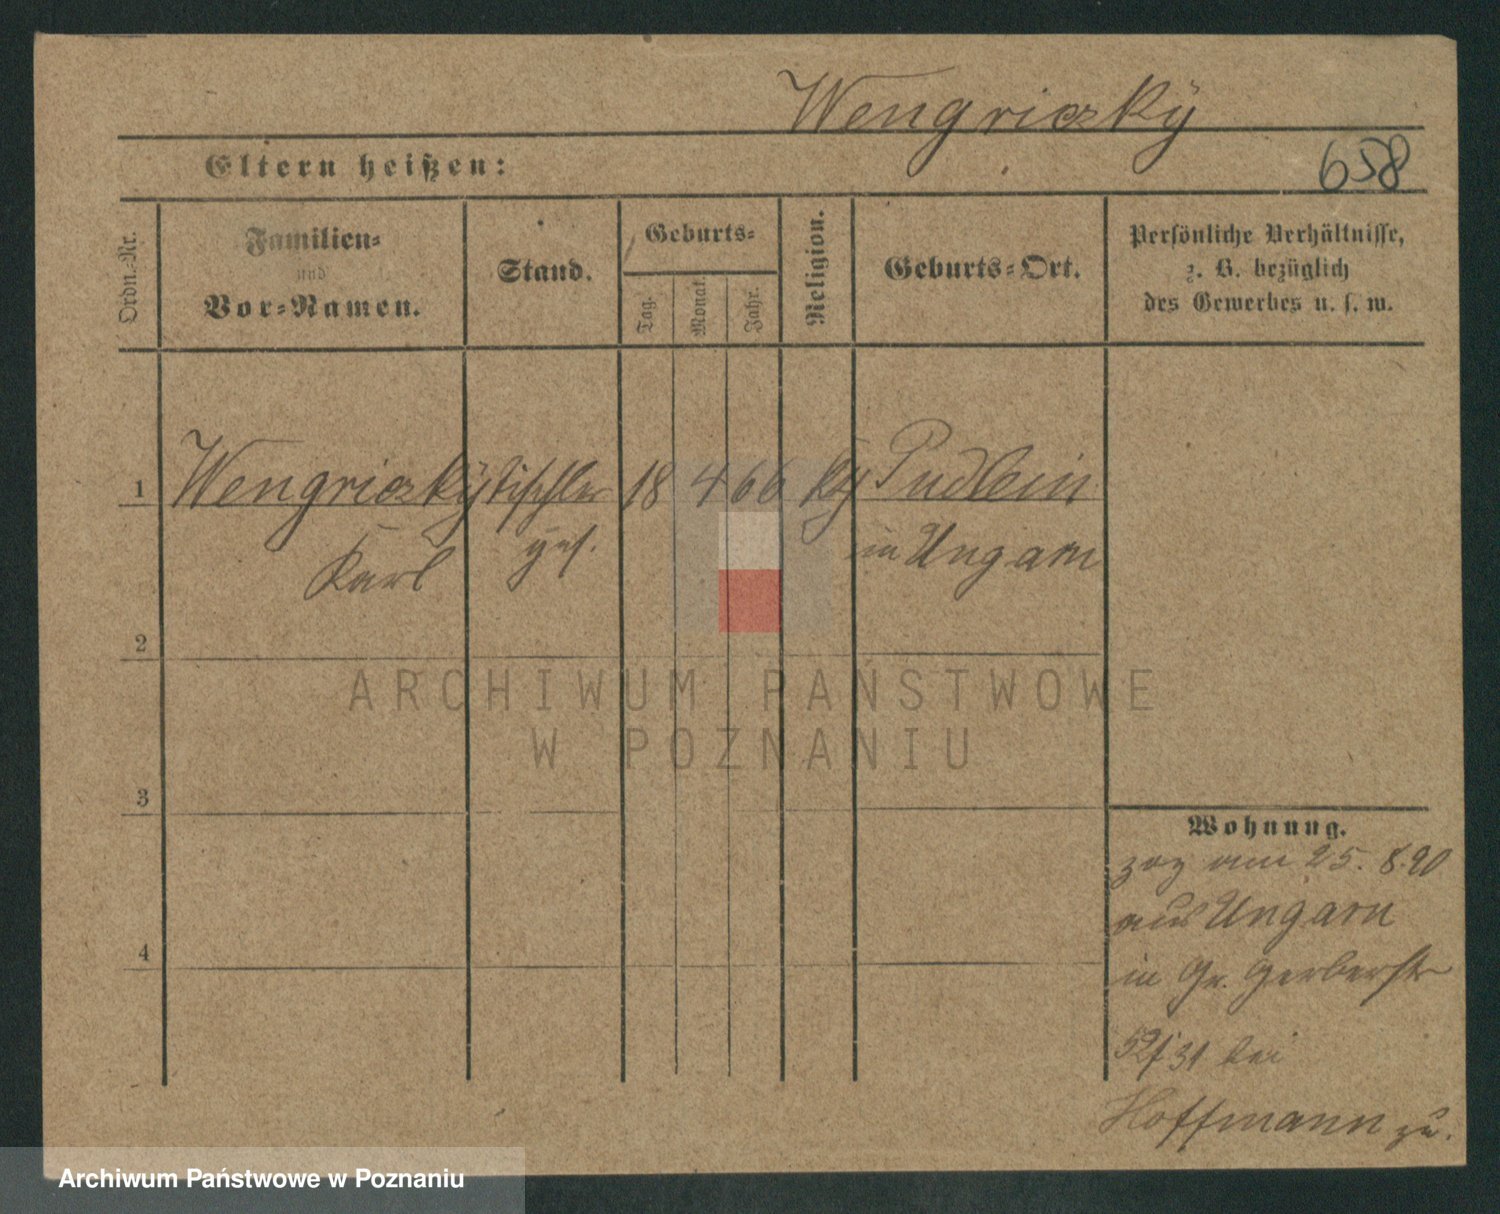 Wengriczky
Eltern heißen:
658
Ordn.-Nr.
Familien-
und
Vor-Namen.
Stand.
Geburts-
Tag.
Monat
Jahr.
Religion.
Geburts-Ort.
Persönliche Verhältnisse,
z. B. bezüglich
des Gewerbes u. s. w.
1 Wengriczky Tischler 18 4 66 Pudlein
Karl ges. in Ungarn
2
3
4
Wohnung.
zog am 25. 8. 90
aus Ungarn
in Gr. Gerberstr
31 bei
Hoffmann zu.
ARCHIWUM PAŃSTWOWE
W POZNANIU
Archiwum Państwowe w Poznaniu